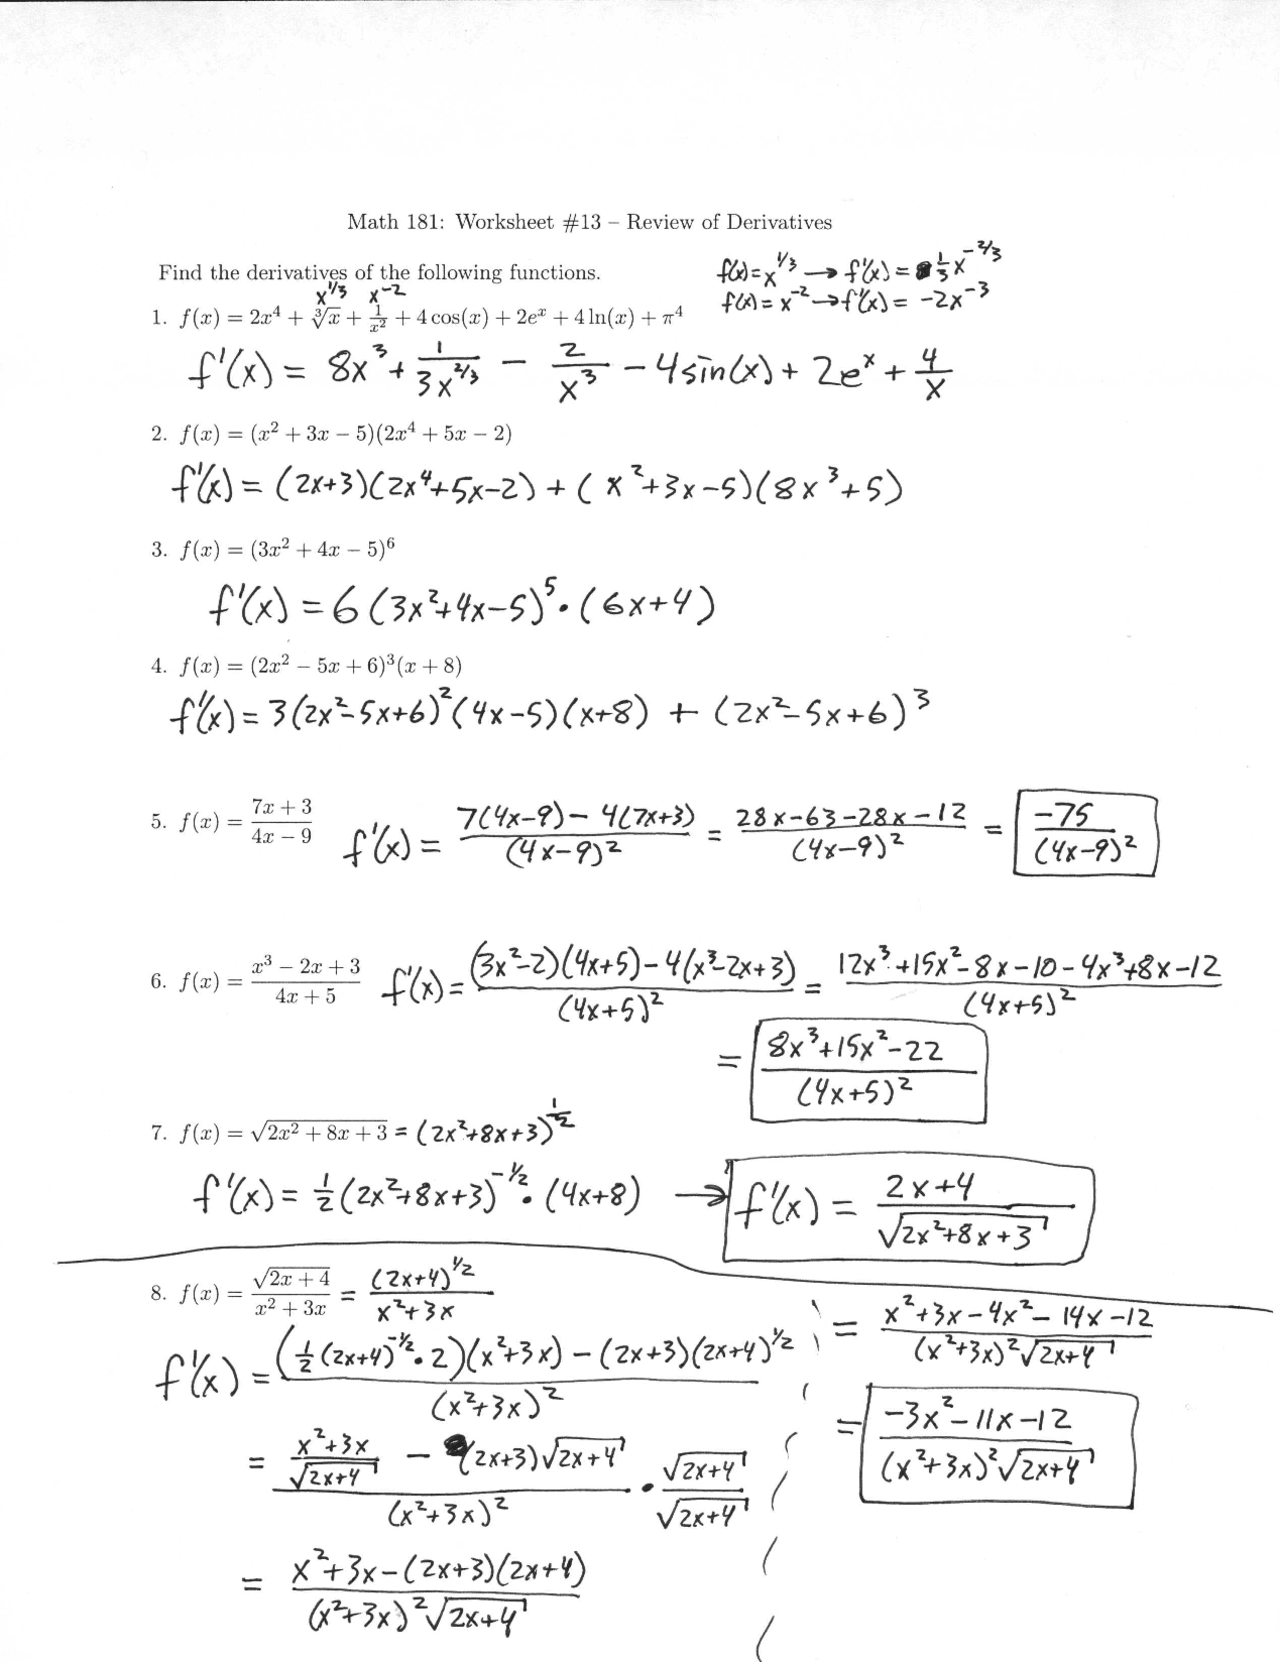 Math 181: Worksheet #13 – Review of Derivatives
Find the derivatives of the following functions.
f(x) = x^{1/3} → f'(x) = 1/3 x^{-2/3}
f(x) = x^{-2} → f'(x) = -2x^{-3}
x^{1/3} x^{-2}
1. f(x) = 2x^4 + ∛x + 1/x^2 + 4 cos(x) + 2e^x + 4 ln(x) + π^4
f'(x) = 8x^3 + 1/(3x^{2/3}) - 2/x^3 - 4sin(x) + 2e^x + 4/x
2. f(x) = (x^2 + 3x − 5)(2x^4 + 5x − 2)
f'(x) = (2x+3)(2x^4+5x-2) + (x^2+3x-5)(8x^3+5)
3. f(x) = (3x^2 + 4x − 5)^6
f'(x) = 6(3x^2+4x-5)^5 · (6x+4)
4. f(x) = (2x^2 − 5x + 6)^3(x + 8)
f'(x) = 3(2x^2-5x+6)^2(4x-5)(x+8) + (2x^2-5x+6)^3
5. f(x) = (7x + 3)/(4x − 9) f'(x) = (7(4x-9) - 4(7x+3))/(4x-9)^2 = (28x-63-28x-12)/(4x-9)^2 = -75/(4x-9)^2
6. f(x) = (x^3 − 2x + 3)/(4x + 5) f'(x) = ((3x^2-2)(4x+5) - 4(x^3-2x+3))/(4x+5)^2 = (12x^3+15x^2-8x-10-4x^3+8x-12)/(4x+5)^2
= (8x^3+15x^2-22)/(4x+5)^2
7. f(x) = √(2x^2 + 8x + 3) = (2x^2+8x+3)^{1/2}
f'(x) = 1/2 (2x^2+8x+3)^{-1/2} · (4x+8) → f'(x) = (2x+4)/√(2x^2+8x+3)
8. f(x) = √(2x + 4)/(x^2 + 3x) = (2x+4)^{1/2}/(x^2+3x)
f'(x) = ((1/2 (2x+4)^{-1/2} · 2)(x^2+3x) - (2x+3)(2x+4)^{1/2})/(x^2+3x)^2
= ((x^2+3x)/√(2x+4) - (2x+3)√(2x+4))/(x^2+3x)^2 · √(2x+4)/√(2x+4)
= (x^2+3x-(2x+3)(2x+4))/((x^2+3x)^2√(2x+4))
= (x^2+3x-4x^2-14x-12)/((x^2+3x)^2√(2x+4))
= (-3x^2-11x-12)/((x^2+3x)^2√(2x+4))